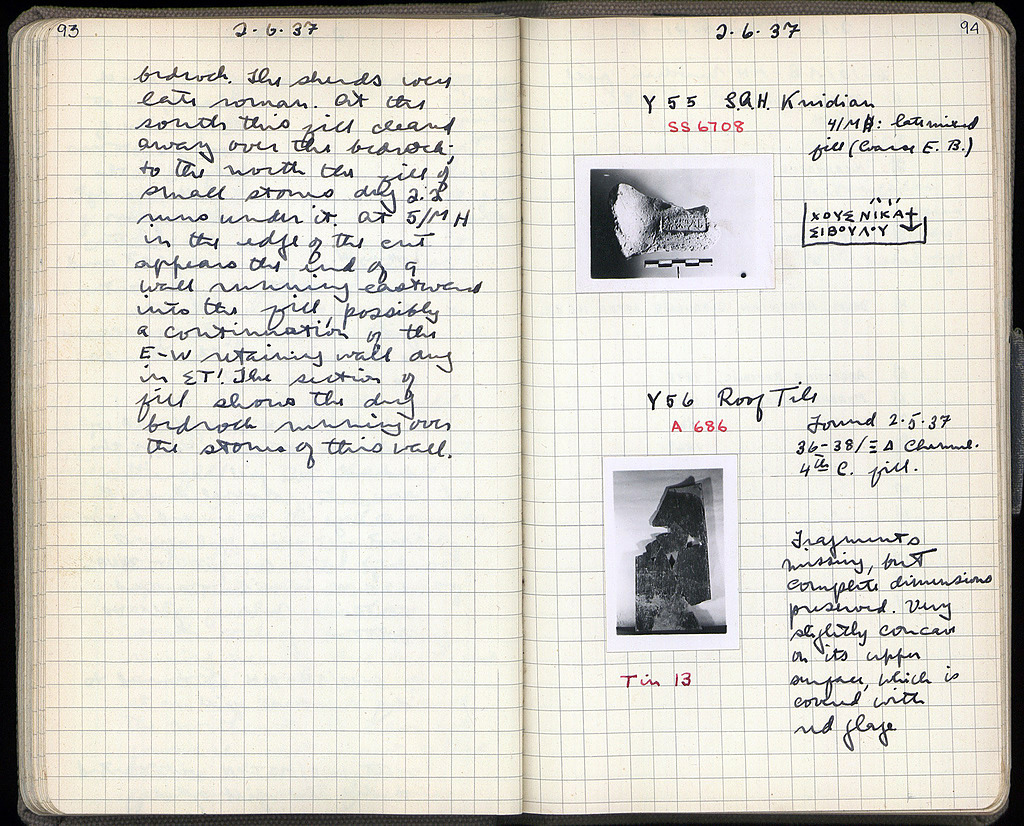 93
2·6·37
bedrock. The sherds were
late roman. At the
south this fill cleared
away over the bedrock;
to the north the fill of
small stones dug 2.2
runs under it. At 5/M H
in the edge of the cut
appears the end of a
wall running eastward
into the fill, possibly
a continuation of the
E-W retaining wall dug
in ΣT! The section of
fill shows the dug
bedrock running over
the stones of this wall.
2·6·37
94
Y 55 S.A.H. Knidian
SS 6708
4/M: late mixed
fill (Coarse E. B.)
ΧΟΥΣ ΝΙΚΑ
ΣΙΒΟΥΛΟΥ
Y56 Roof Tile
A 686
Found 2·5·37
36-38/Ξ Δ Channel.
4th C. fill.
Fragments
missing, but
complete dimensions
preserved. Very
slightly concave
on its upper
surface, which is
covered with
red glaze
Tin 13